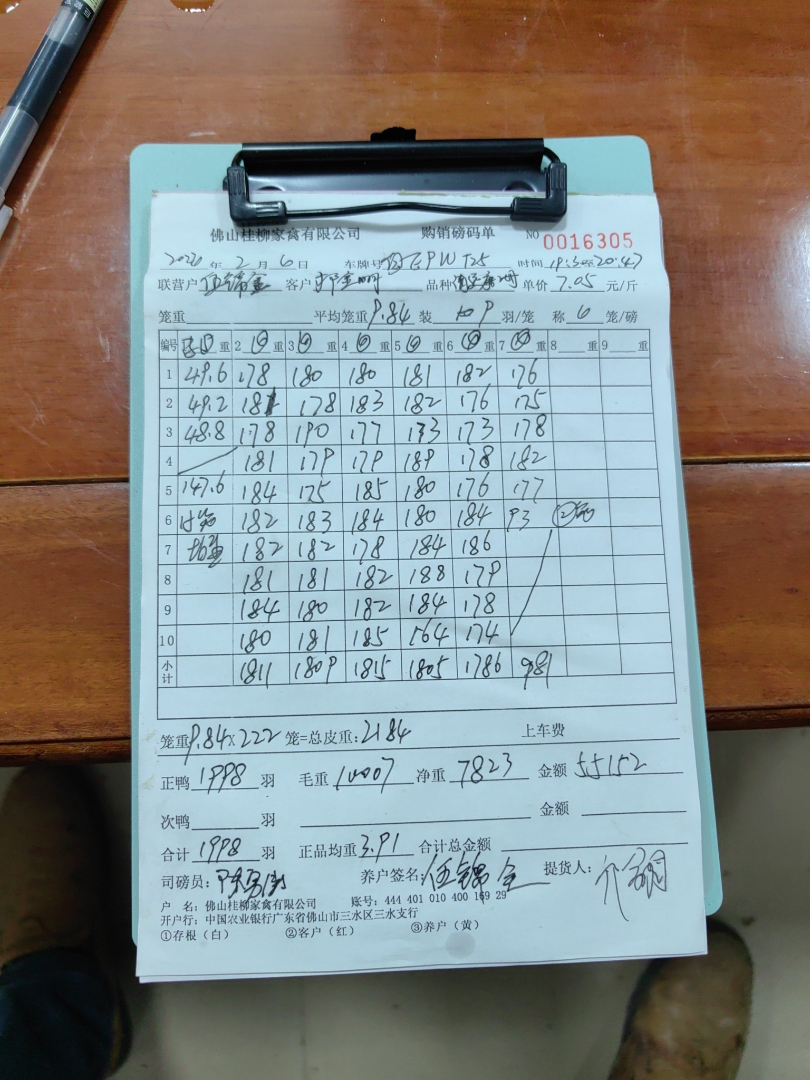 佛山桂柳家禽有限公司 购销磅码单 NO 0016305
2026 年 2 月 6 日 车牌号 时间 19:30至20:47
联营户 伍锦全 客户 品种 单价 7.05 元/斤
笼重 平均笼重 9.84 装 10 9 羽/笼 称 6 笼/磅
编号 重 2 ⑥ 重 3 ⑥ 重 4 ⑥ 重 5 ⑥ 重 6 ⑥ 重 7 ⑥ 重 8 重 9 重
1 49.6 178 180 180 181 182 176
2 49.2 181 178 183 182 176 175
3 48.8 178 190 177 173 173 178
4 181 179 179 189 178 182
5 147.6 184 175 185 180 176 177
6 182 183 184 180 184 93
7 182 182 178 184 186
8 181 181 182 188 179
9 184 180 182 184 178
10 180 181 185 164 174
小计 1811 1809 1815 1805 1786 981
笼重 9.84 × 222 笼=总皮重: 2184 上车费
正鸭 1998 羽 毛重 10007 净重 7823 金额 55152
次鸭 羽 金额
合计 1998 羽 正品均重 3.91 合计总金额
司磅员: 养户签名: 伍锦全 提货人:
户 名: 佛山桂柳家禽有限公司 账号: 444 401 010 400 169 29
开户行: 中国农业银行广东省佛山市三水区三水支行
①存根(白) ②客户(红) ③养户(黄)